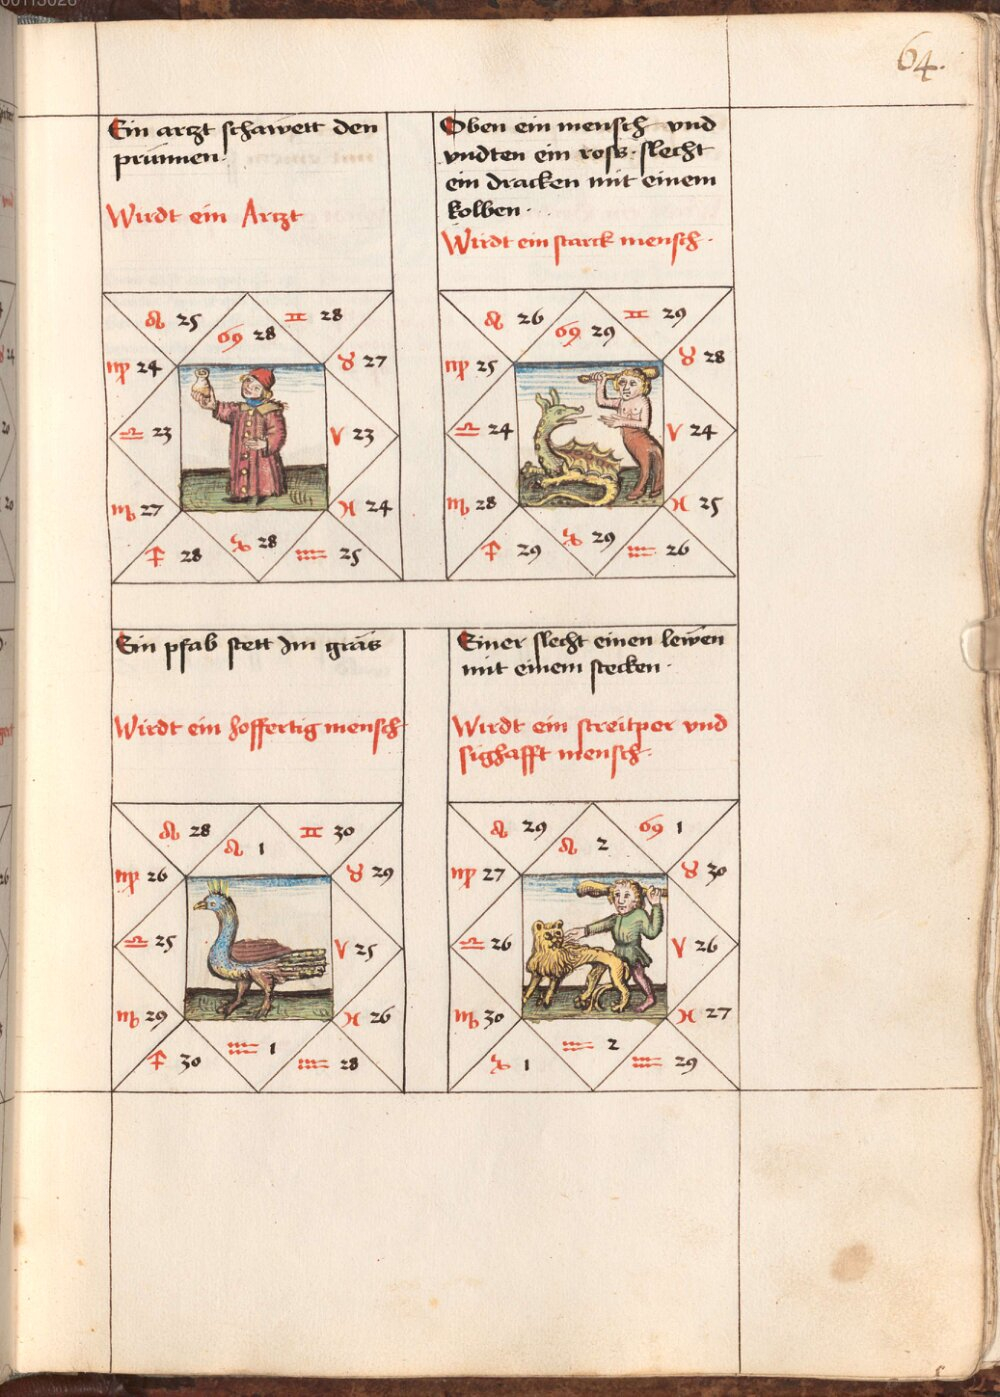 64.
Ein arczt schawett den
prunnen.
Wirdt ein Arczt
♌ 25
♋ 28
♊ 28
♍ 24
♉ 27
♎ 23
♈ 23
♏ 27
♓ 24
♐ 28
♑ 28
♒ 25
Oben ein mensch vnd
vndten ein ross slecht
ein dracken mit einem
kolben.
Wirdt ein starck mensch.
♌ 26
♋ 29
♊ 29
♍ 25
♉ 28
♎ 24
♈ 24
♏ 28
♓ 25
♐ 29
♑ 29
♒ 26
Ein pfab stett Im gras
Wirdt ein hoffertig mensch
♌ 28
♌ 1
♊ 30
♍ 26
♉ 29
♎ 25
♈ 25
♏ 29
♓ 26
♐ 30
♒ 1
♒ 28
Einer slecht einen lewen
mit einem stecken.
Wirdt ein streitper vnd
sighafft mensch.
♌ 29
♌ 2
♋ 1
♍ 27
♉ 30
♎ 26
♈ 26
♏ 30
♓ 27
♑ 1
♒ 2
♒ 29